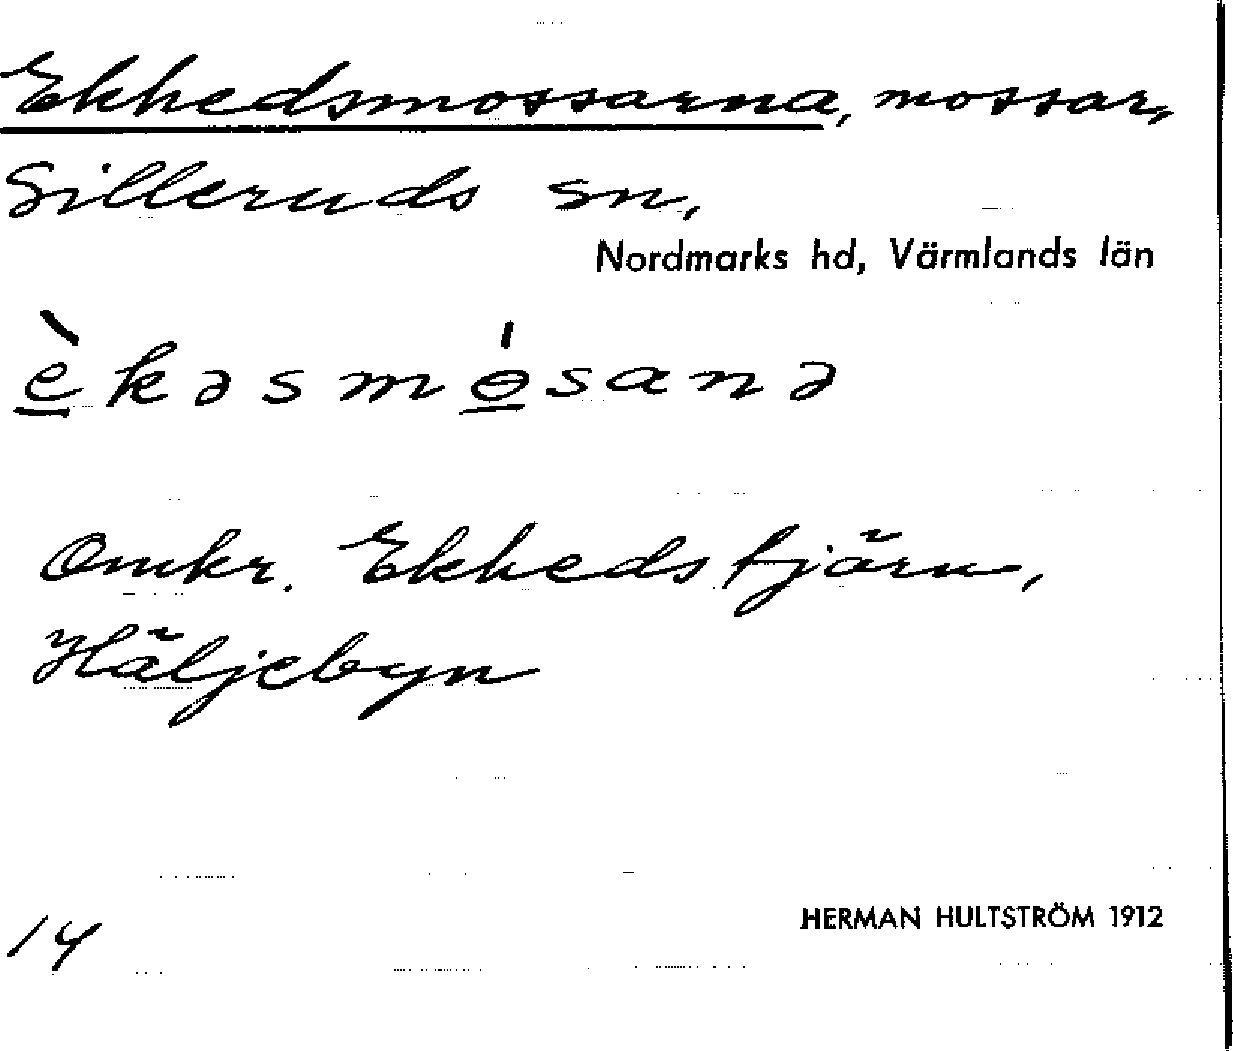 Ekhedsmossarna, mossar,
Silleruds sn,
Nordmarks hd, Värmlands län
èkəsmósanə
Omkr. Ekhedstjärn,
Häljebyn
14
HERMAN HULTSTRÖM 1912